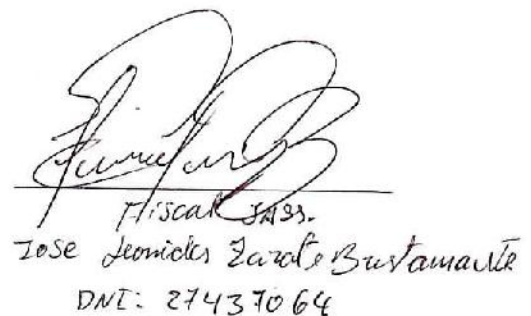 Fiscal JASS.
Jose Leonides Zarate Bustamante
DNI: 27437064